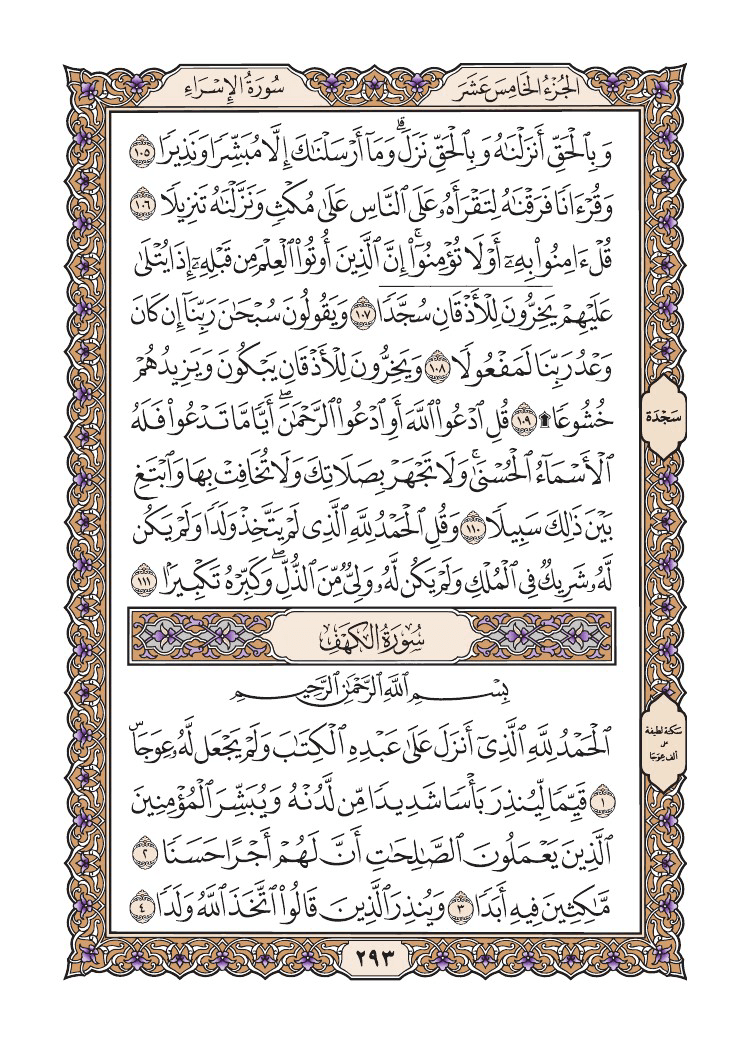 الجُزْءُ الخَامِسَ عَشَرَ
سُورَةُ الإِسْرَاءِ
وَبِٱلۡحَقِّ أَنزَلۡنَٰهُ وَبِٱلۡحَقِّ نَزَلَۗ وَمَآ أَرۡسَلۡنَٰكَ إِلَّا مُبَشِّرٗا وَنَذِيرٗا ١٠٥
وَقُرۡءَانٗا فَرَقۡنَٰهُ لِتَقۡرَأَهُۥ عَلَى ٱلنَّاسِ عَلَىٰ مُكۡثٖ وَنَزَّلۡنَٰهُ تَنزِيلٗا ١٠٦
قُلۡ ءَامِنُواْ بِهِۦٓ أَوۡ لَا تُؤۡمِنُوٓاْۚ إِنَّ ٱلَّذِينَ أُوتُواْ ٱلۡعِلۡمَ مِن قَبۡلِهِۦٓ إِذَا يُتۡلَىٰ
عَلَيۡهِمۡ يَخِرُّونَ لِلۡأَذۡقَانِۤ سُجَّدٗا ١٠٧ وَيَقُولُونَ سُبۡحَٰنَ رَبِّنَآ إِن كَانَ
وَعۡدُ رَبِّنَا لَمَفۡعُولٗا ١٠٨ وَيَخِرُّونَ لِلۡأَذۡقَانِ يَبۡكُونَ وَيَزِيدُهُمۡ
خُشُوعٗا ١٠٩ ۩ قُلِ ٱدۡعُواْ ٱللَّهَ أَوِ ٱدۡعُواْ ٱلرَّحۡمَٰنَۖ أَيّٗا مَّا تَدۡعُواْ فَلَهُ
ٱلۡأَسۡمَآءُ ٱلۡحُسۡنَىٰۚ وَلَا تَجۡهَرۡ بِصَلَاتِكَ وَلَا تُخَافِتۡ بِهَا وَٱبۡتَغِ
بَيۡنَ ذَٰلِكَ سَبِيلٗا ١١٠ وَقُلِ ٱلۡحَمۡدُ لِلَّهِ ٱلَّذِي لَمۡ يَتَّخِذۡ وَلَدٗا وَلَمۡ يَكُن
لَّهُۥ شَرِيكٞ فِي ٱلۡمُلۡكِ وَلَمۡ يَكُن لَّهُۥ وَلِيّٞ مِّنَ ٱلذُّلِّۖ وَكَبِّرۡهُ تَكۡبِيرَۢا ١١١
سُورَةُ الكَهْفِ
بِسۡمِ ٱللَّهِ ٱلرَّحۡمَٰنِ ٱلرَّحِيمِ
ٱلۡحَمۡدُ لِلَّهِ ٱلَّذِيٓ أَنزَلَ عَلَىٰ عَبۡدِهِ ٱلۡكِتَٰبَ وَلَمۡ يَجۡعَل لَّهُۥ عِوَجَاۜ
١ قَيِّمٗا لِّيُنذِرَ بَأۡسٗا شَدِيدٗا مِّن لَّدُنۡهُ وَيُبَشِّرَ ٱلۡمُؤۡمِنِينَ
ٱلَّذِينَ يَعۡمَلُونَ ٱلصَّٰلِحَٰتِ أَنَّ لَهُمۡ أَجۡرًا حَسَنٗا ٢
مَّٰكِثِينَ فِيهِ أَبَدٗا ٣ وَيُنذِرَ ٱلَّذِينَ قَالُواْ ٱتَّخَذَ ٱللَّهُ وَلَدٗا ٤
سَجْدَة
سكتة لطيفة
على
ألف عِوَجَا
٢٩٣